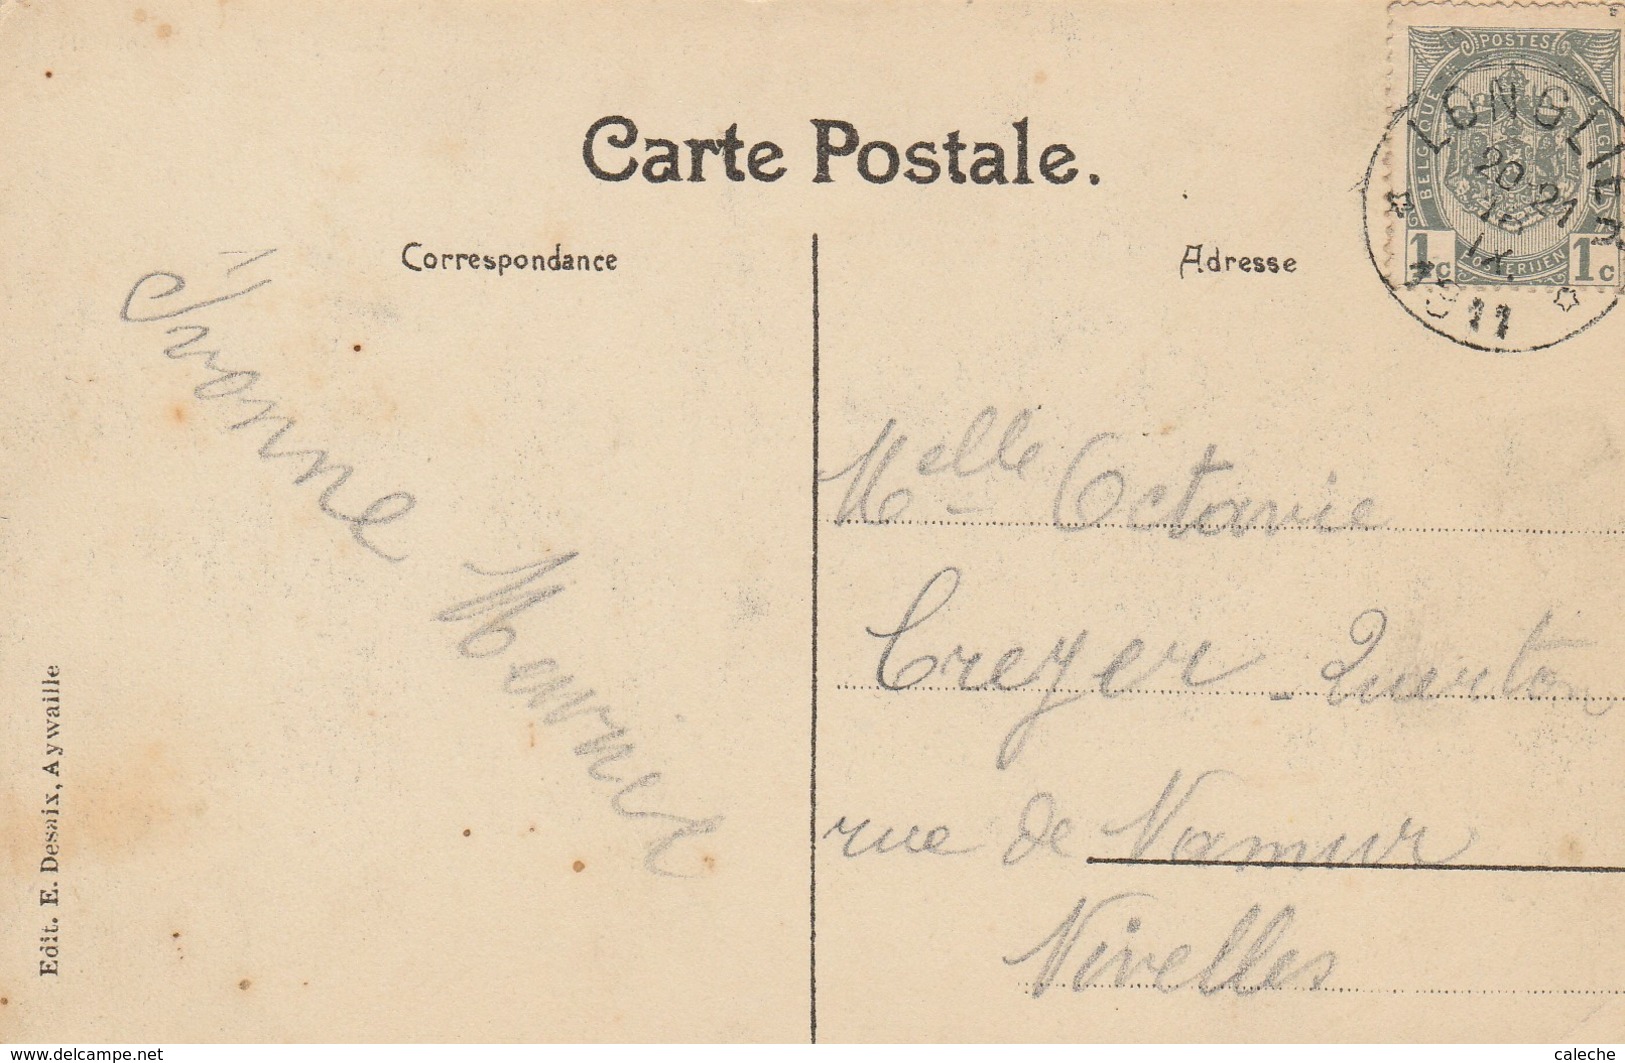 POSTES
BELGIQUE
BELGIË
LONGLIER
20-21
IX
1911
1c
1c
POSTERIJEN
Carte Postale.
Correspondance
Adresse
Yvonne
Melle Octavie
Creyer - Querton
rue de Namur
Nivelles
Edit. E. Desaix, Aywaille
www.delcampe.net
caleche